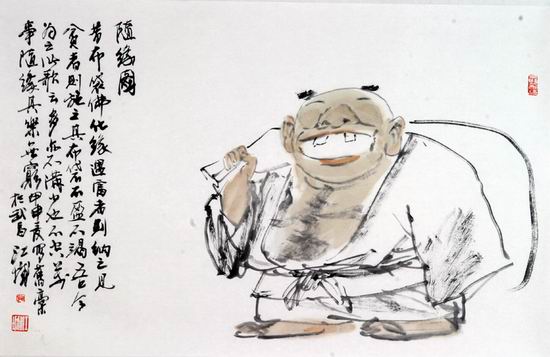 隨緣圖
昔布袋佛化緣遇富者則納之見
貧者則施之其布袋不盈不竭吾今
為之歌云多亦不滿少也不空萬
事隨緣其樂無窮甲申舊稾
於武昌江